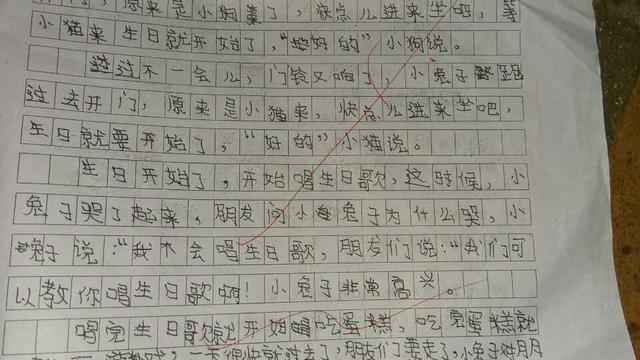 了，原来是小狗来了，快点儿进来坐吧，等
小猫来生日就开始了，“好的”小狗说。
过不一会儿，门铃又响了，小兔子跑
过去开门，原来是小猫来，快点儿进来坐吧，
生日就要开始了，“好的”小猫说。
生日开始了，开始唱生日歌，这时候，小
兔子哭了起来，朋友问小兔子为什么哭，小
兔子说：“我不会唱生日歌，朋友们说：“我们可
以教你唱生日歌啊！小兔子非常高兴。
唱完生日歌就开始吃蛋糕，吃完蛋糕就
一天很快就过去了，朋友们要走了，小兔子对朋